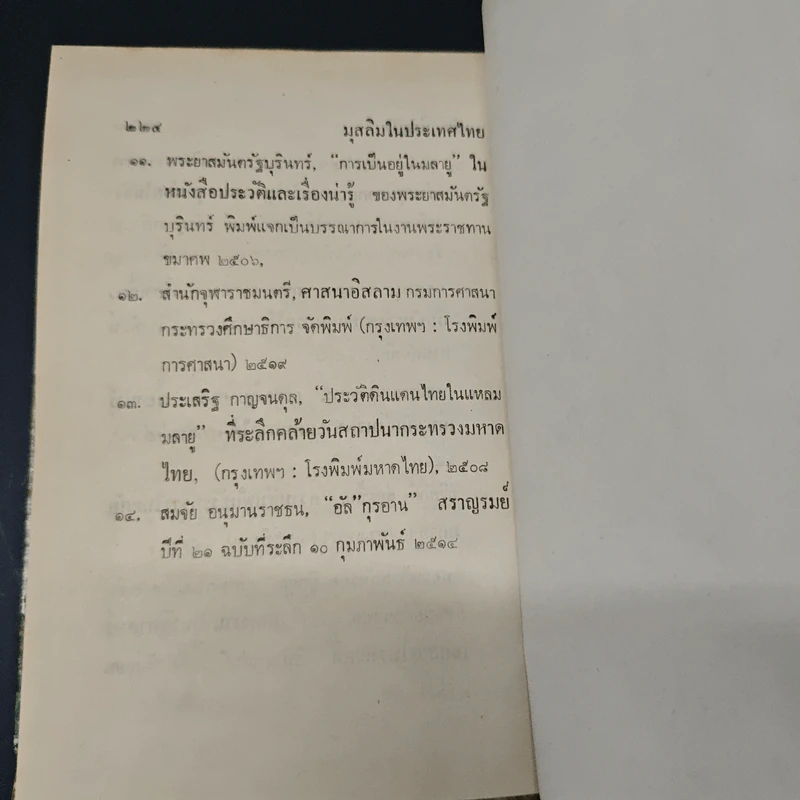 ๒๒๔ มุสลิมในประเทศไทย
๑๑. พระยาสมันตรัฐบุรินทร์, “การเป็นอยู่ในมลายู” ใน
หนังสือประวัติและเรื่องน่ารู้ ของพระยาสมันตรัฐ
บุรินทร์ พิมพ์แจกเป็นบรรณาการในงานพระราชทาน
ขมาศพ ๒๕๐๖,
๑๒. สำนักจุฬาราชมนตรี, ศาสนาอิสลาม กรมการศาสนา
กระทรวงศึกษาธิการ จัดพิมพ์ (กรุงเทพฯ : โรงพิมพ์
การศาสนา) ๒๕๑๙
๑๓. ประเสริฐ กาญจนดุล, “ประวัติดินแดนไทยในแหลม
มลายู” ที่ระลึกคล้ายวันสถาปนากระทรวงมหาด
ไทย, (กรุงเทพฯ : โรงพิมพ์มหาดไทย), ๒๕๐๘
๑๔. สมจัย อนุมานราชธน, “อัล”กุรอาน” สราญรมย์
ปีที่ ๒๑ ฉบับที่ระลึก ๑๐ กุมภาพันธ์ ๒๕๑๔